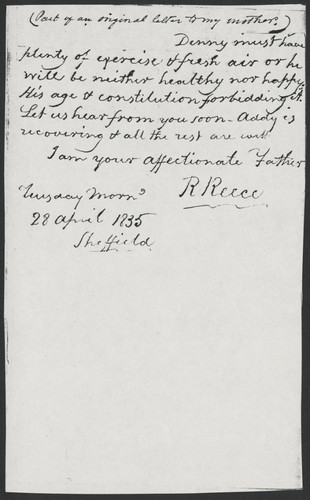 (Part of an original letter to my mother.)
Denny must have
plenty of exercise & fresh air or he
will be neither healthy nor happy
His age & constitution forbidding it.
Let us hear from you soon - Addy is
recovering & all the rest are well
I am your affectionate Father
R Reece
Tuesday Morng
28 April 1835
Sheffield